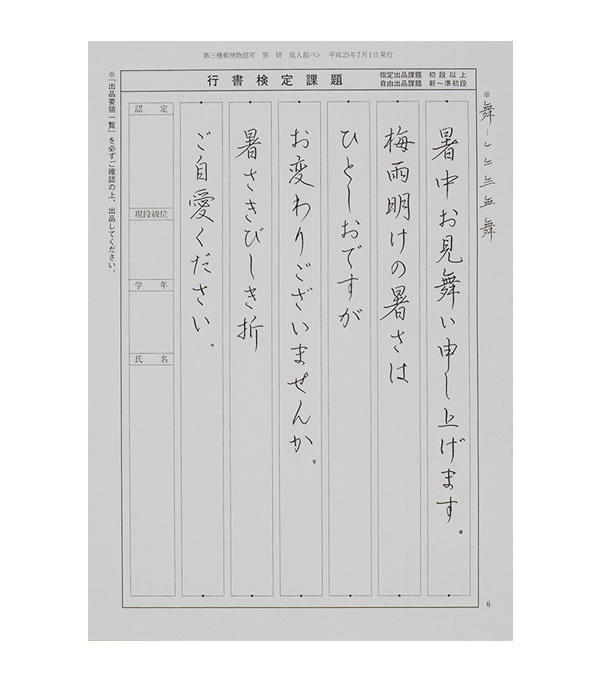 第三種郵便物認可 習 研 成人部ペン 平成25年7月1日発行
行書検定課題
指定出品課題 初段以上
自由出品課題 新～準初段
※舞…
舞
暑中お見舞い申し上げます。
梅雨明けの暑さは
ひとしおですが
お変わりございませんか。
暑さきびしき折
ご自愛ください。
認定
現段級位
学年
氏名
※「出品要領一覧」を必ずご確認の上、出品してください。
6